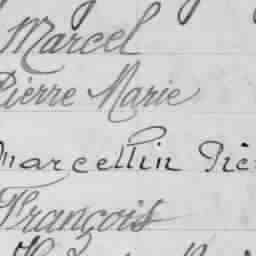 Marcel
Pierre Marie
Marcellin
François